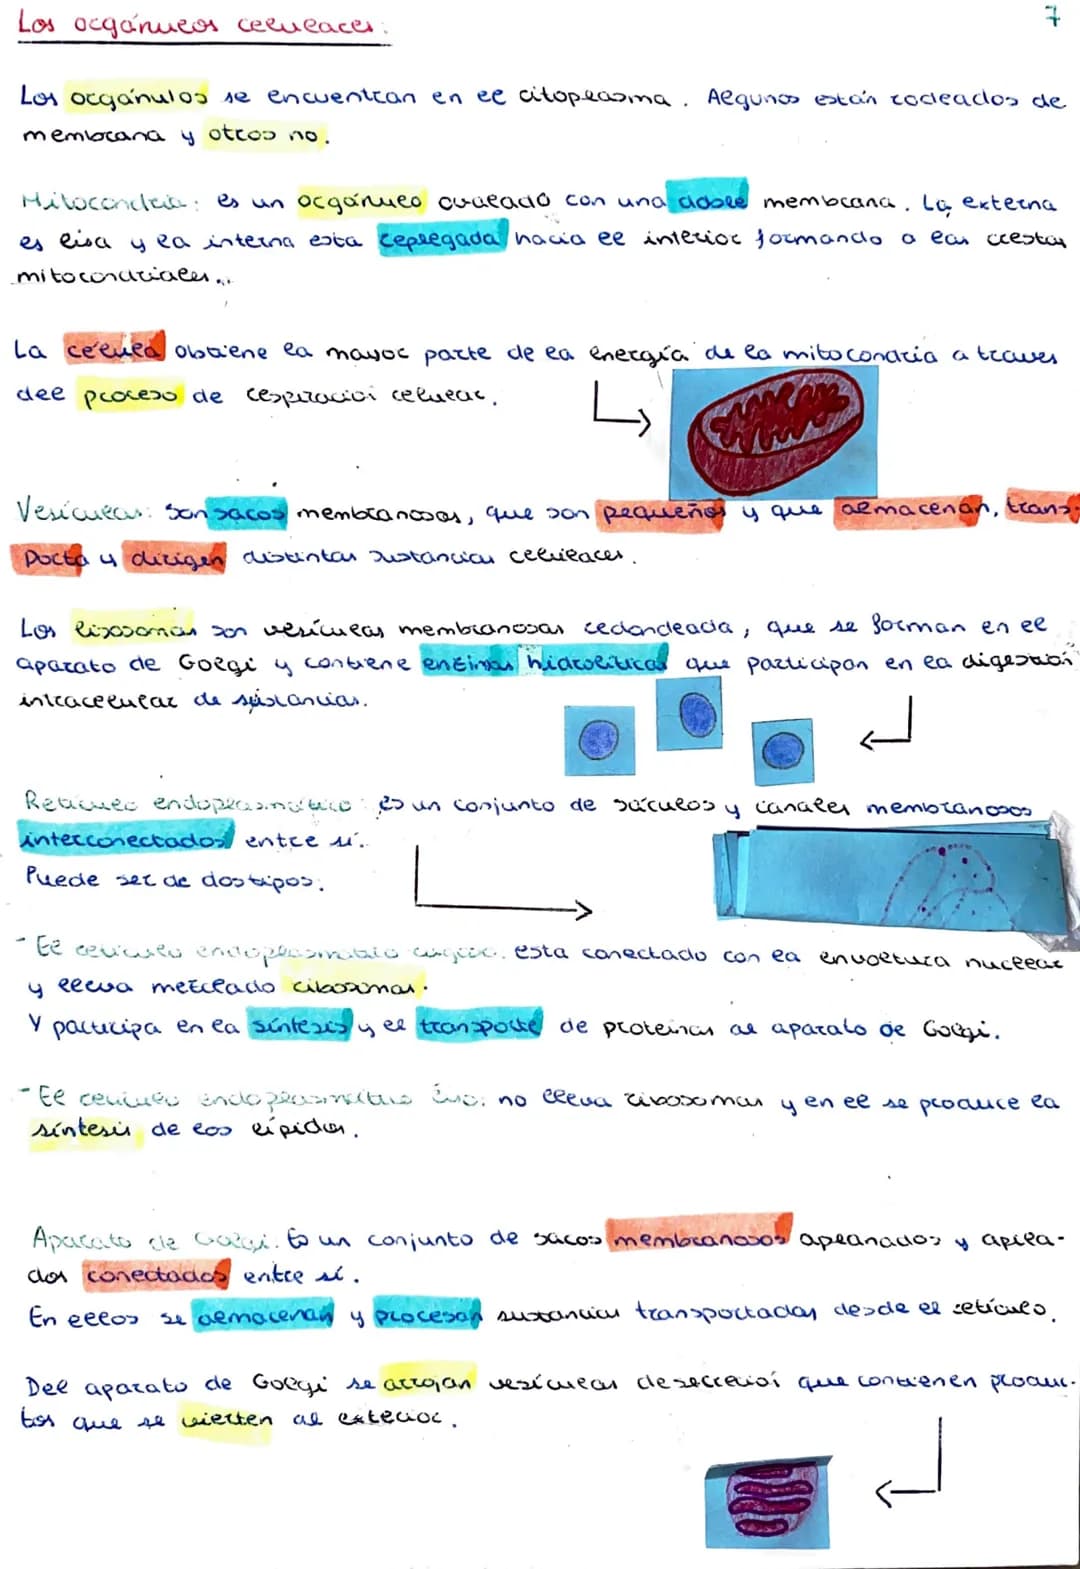 Los orgánulos celulares: 7
Los orgánulos se encuentran en el citoplasma. Algunos están rodeados de
membrana y otros no.
Mitocondria: es un orgánulo ovalado con una doble membrana. La externa
es lisa y la interna esta replegada hacia el interior formando a las crestas
mitocondriales.
La célula obtiene la mayor parte de la energía de la mitocondria a traves
del proceso de respiracioi celular.
Vesículas: Son sacos membranosos, que son pequeños y que almacenan, trans-
porta y dirigen distintas sustancias celulares.
Los lisosomas son vesículas membranosas redondeada, que se forman en el
aparato de Golgi y contiene enzimas hidrolíticas que participan en la digestión
intracelular de sustancias.
Retículo endoplasmático: es un conjunto de sáculos y canales membranosos
interconectados entre sí.
Puede ser de dos tipos:
- El retículo endoplasmático rugoso: esta conectado con la envoltura nuclear
y lleva mezclado ribosomas.
Y participa en la síntesis y el transporte de proteínas al aparato de Golgi.
- El retículo endoplasmático liso: no lleva ribosomas y en el se produce la
síntesis de los lípidos.
Aparato de Golgi: Es un conjunto de sacos membranosos aplanados y apila-
dos conectados entre sí.
En ellos se almacenan y procesan sustancias transportadas desde el retículo.
Del aparato de Golgi se arrojan vesículas de secrecioi que contienen produc-
tos que se vierten al exterior.